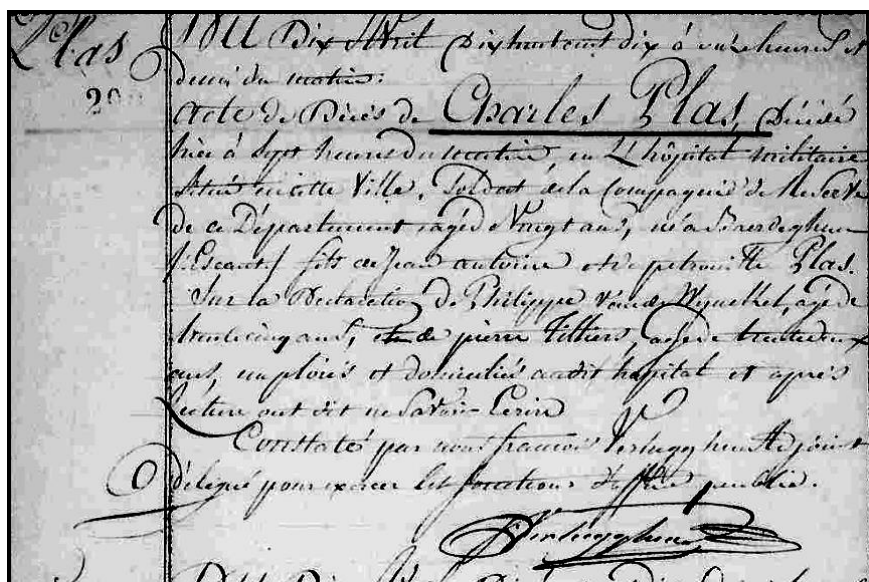 Plas
29
Du Dix Avril Dix huit cent dix à onze heures et
demi du matin:
acte de Décès de Charles Plas, Décédé
hier à Sept heures du matin, en L'hôpital militaire
Situé en cette Ville, Soldat de la Compagnie de Reserve
de ce Département, agé de Vingt ans, né à Baerdeghem
(Escaut) fils de Jean antoine et de petronille Plas.
Sur la Déclaration de Philippe agé de
trente cinq ans, et de pierre Tilliers, agé de trente deux
ans, emploiés et domiciliés audit hôpital et après
Lecture ont dit ne Savoir Ecrire
Constaté par nous francois Verheyghen Adjoint
délégué pour exercer les fonctions d'officier public.